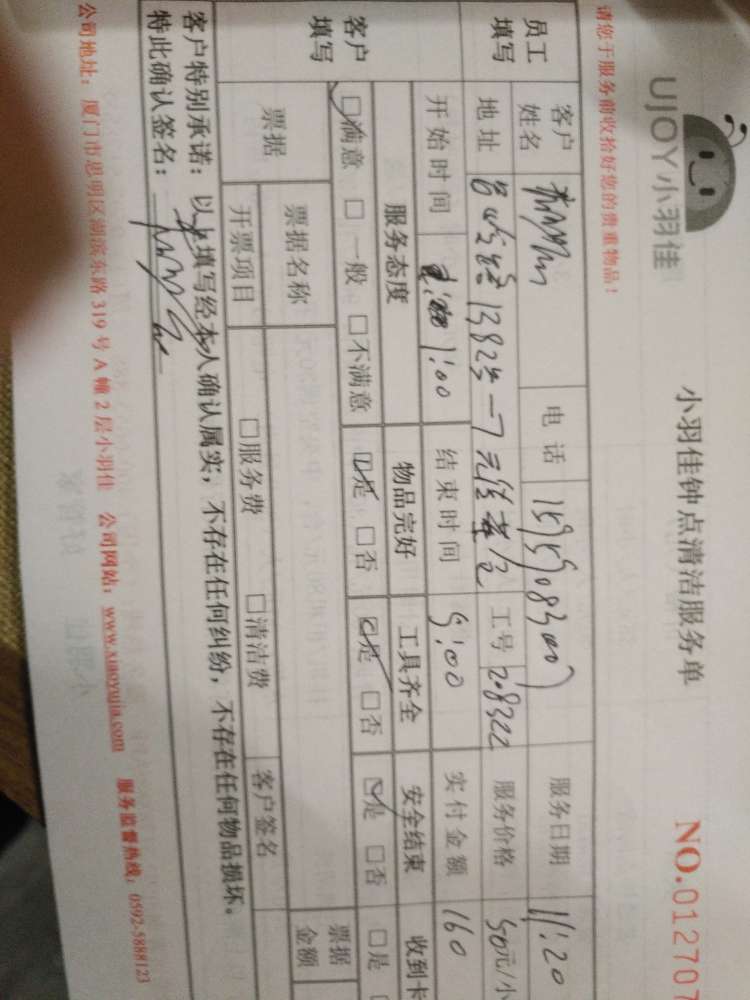 UJOY小羽佳
小羽佳钟点清洁服务单
NO.012707
请您于服务前收拾好您的贵重物品！
员工填写
客户姓名
电话
服务日期 11:20
地址
工号 208322
服务价格 50元/小
开始时间 1:00
结束时间 5:00
实付金额 160
客户填写
服务态度 物品完好 工具齐全 安全结束 收到卡
□满意 □一般 □不满意 □是 □否 □是 □否 □是 □否 □是
票据
票据名称
票据金额
开票项目 □服务费 □清洁费 客户签名
客户特别承诺：以上填写经本人确认属实，不存在任何纠纷，不存在任何物品损坏。
特此确认签名：
公司地址：厦门市思明区湖滨东路319号A幢2层小羽佳 公司网站：www.xiaoyujia.com 服务监督热线：0592-5888123